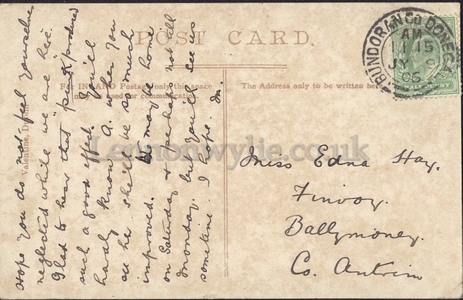 POST CARD.
For INLAND Postage only this space may be used for communication.
The Address only to be written here.
Valentines, Dublin
BUNDORAN CO DONEGAL
AM
11 15
JY 9
06
Lennonwylie.co.uk
Hope you do not feel yourselves
neglected while we are here.
Glad to hear that produced
such a good effect. You'll
hardly know A. when you
see he she'll be so much
improved. We may be home
on Saturday & perhaps not till
Monday but you'll see us
sometime I hope. M.
Miss Edna Hay.
Finvoy.
Ballymoney.
Co. Antrim